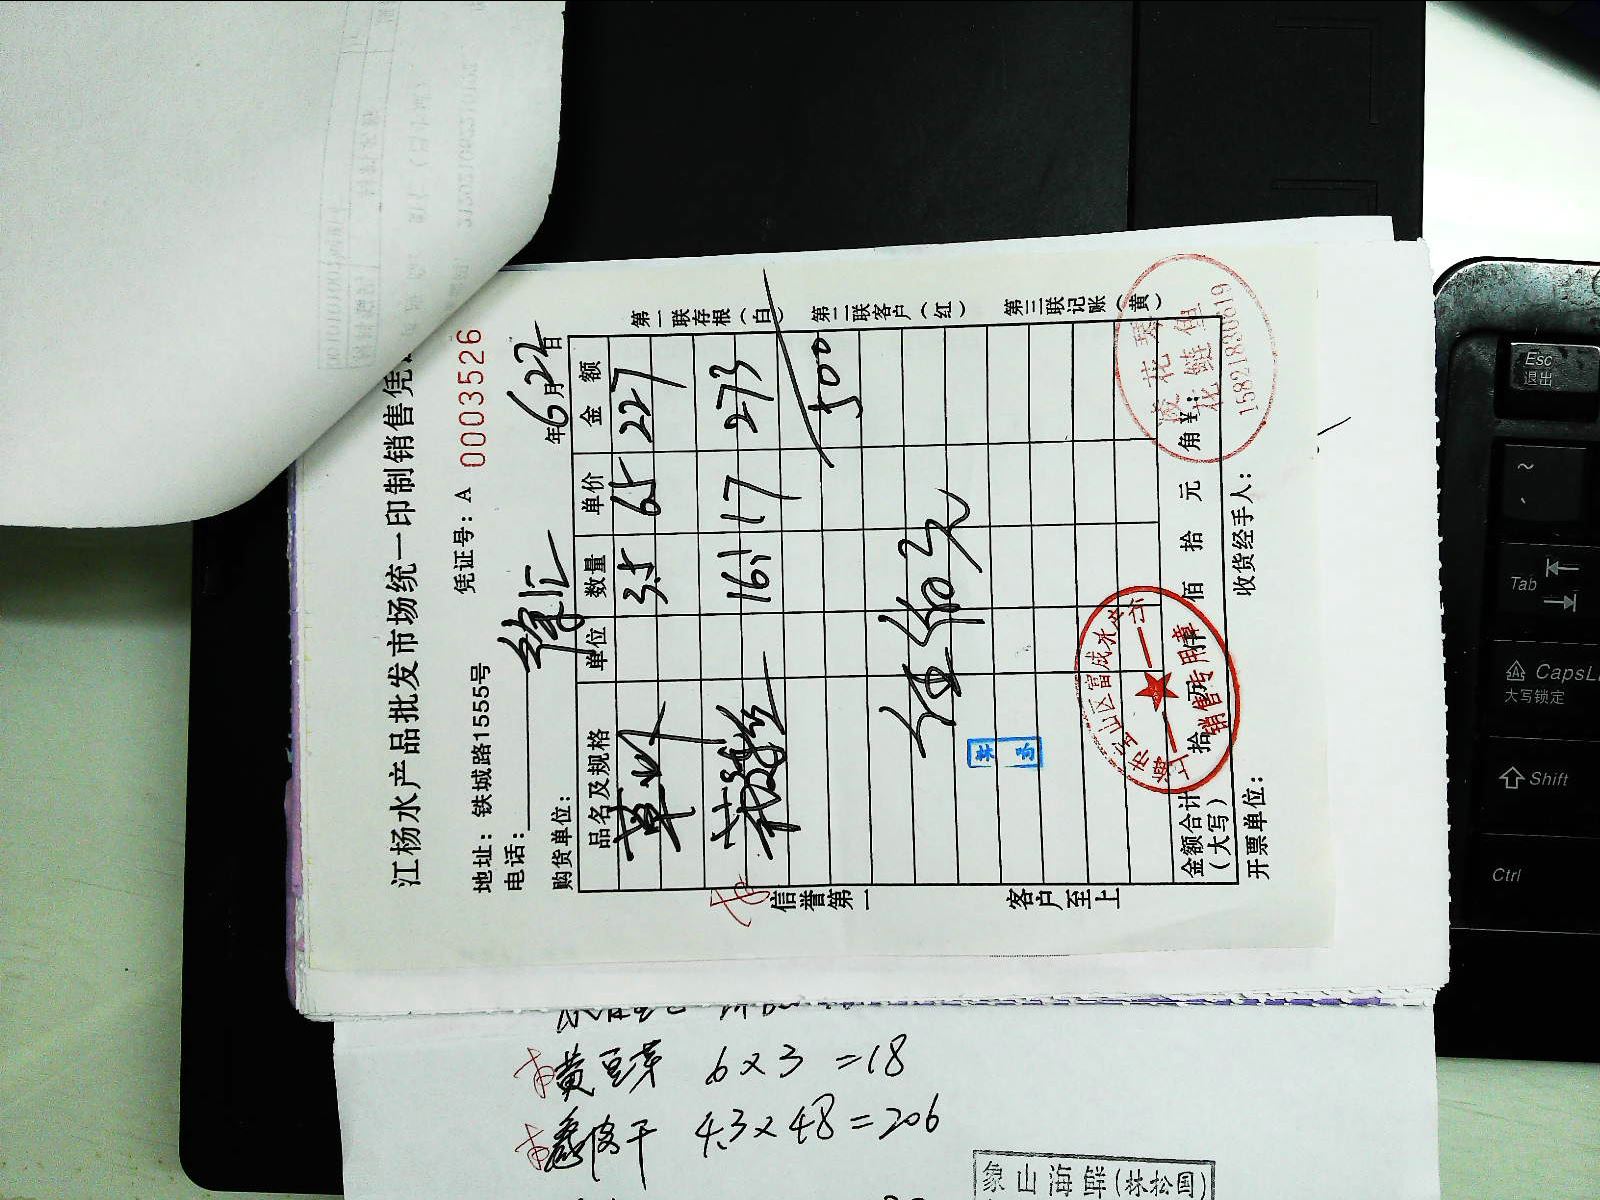 江杨水产品批发市场统一印制销售凭
地址：铁城路1555号 凭证号：A 0003526
电话：
购货单位： 徐汇 年6月22日
品名及规格 单位 数量 单价 金额
草虾 3.5 65 227
16.1 17 273
500
伍佰元
金额合计（大写） 拾 万 仟 佰 拾 元 角 ¥：
开票单位： 收货经手人：
信誉第一 客户至上
第一联存根（白） 第二联客户（红） 第三联记账（黄）
销售专用章
花鲢鱼
15821830619
黄豆芽 6×3=18
4.3×48=206
象山海鲜(林松国)
Esc
退出
Tab
CapsL
大写锁定
Shift
Ctrl